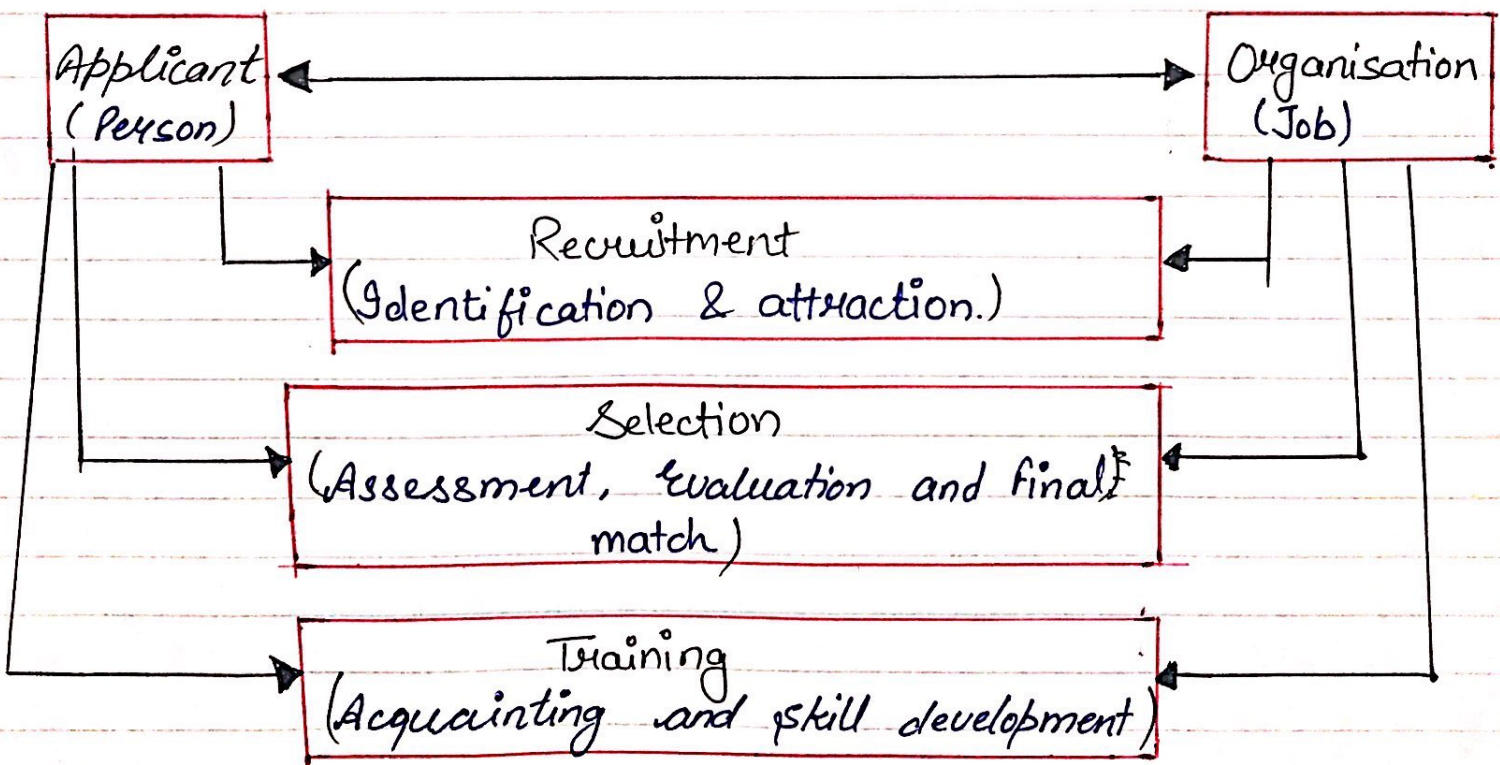 Applicant
(Person)
Organisation
(Job)
Recruitment
(Identification & attraction.)
Selection
(Assessment, Evaluation and final
match)
Training
(Acquainting and skill development)